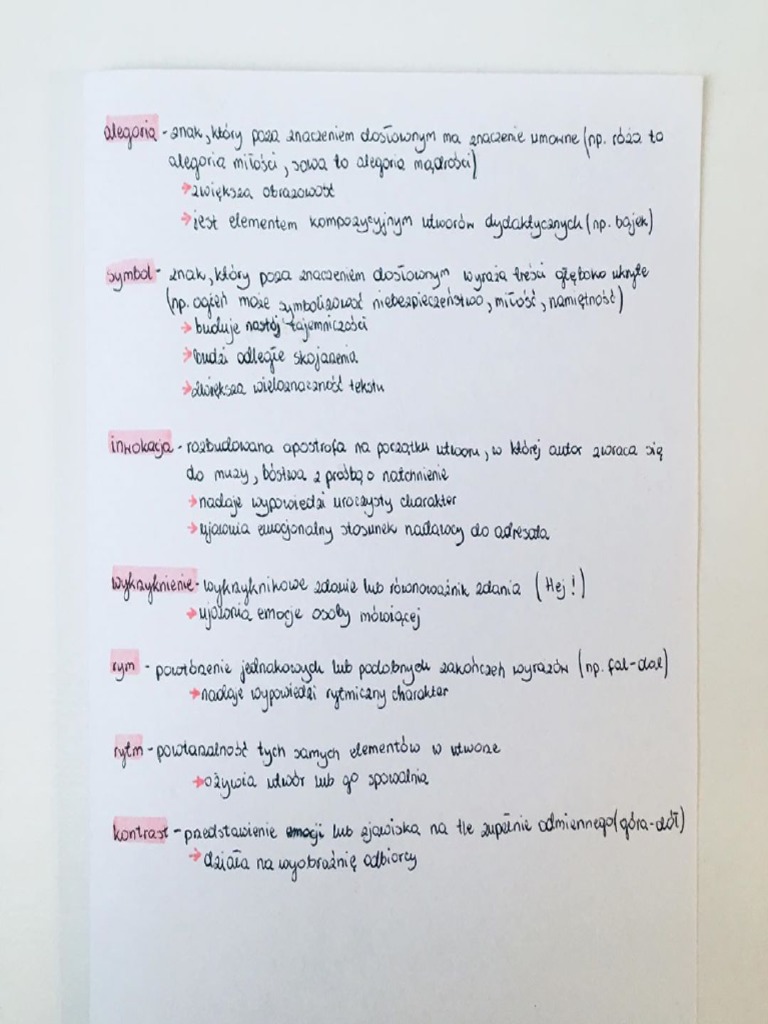 alegoria - znak, który poza znaczeniem dosłownym ma znaczenie umowne (np. róża to
alegoria miłości, sowa to alegoria mądrości)
→ zwiększa obrazowość
→ jest elementem kompozycyjnym utworów dydaktycznych (np. bajek)
symbol - znak, który poza znaczeniem dosłownym wyraża treści głęboko ukryte
(np. ogień może symbolizować niebezpieczeństwo, miłość, namiętność)
→ buduje nastój tajemniczości
→ budzi odległe skojarzenia
→ zwiększa wieloznaczność tekstu
inwokacja - rozbudowana apostrofa na początku utworu, w której autor zwraca się
do muzy, bóstwa z prośbą o natchnienie
→ nadaje wypowiedzi uroczysty charakter
→ ujawnia emocjonalny stosunek nadawcy do adresata
wykrzyknienie - wykrzyknikowe zdanie lub równoważnik zdania (Hej!)
→ ujawnia emocje osoby mówiącej
rym - powtórzenie jednakowych lub podobnych zakończeń wyrazów (np. fal-dal)
→ nadaje wypowiedzi rytmiczny charakter
rytm - powtarzalność tych samych elementów w utworze
→ ożywia utwór lub go spowalnia
kontrast - przedstawienie emocji lub zjawiska na tle zupełnie odmiennego (góra-dół)
→ działa na wyobraźnię odbiorcy